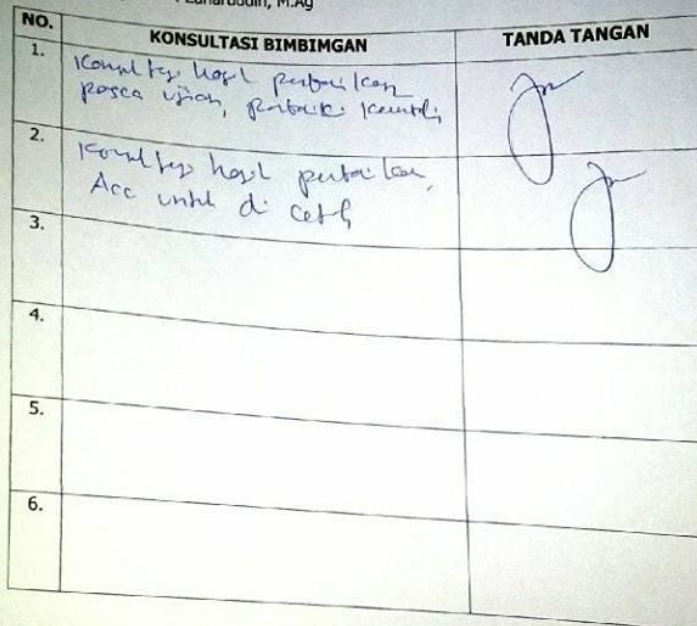 Zuharuddin, M.Ag
NO. KONSULTASI BIMBIMGAN TANDA TANGAN
1. Konsultasi hasil perbaikan
pasca ujian, perbaiki kembali
2. Konsultasi hasil perbaikan,
Acc untuk di cetak
3.
4.
5.
6.